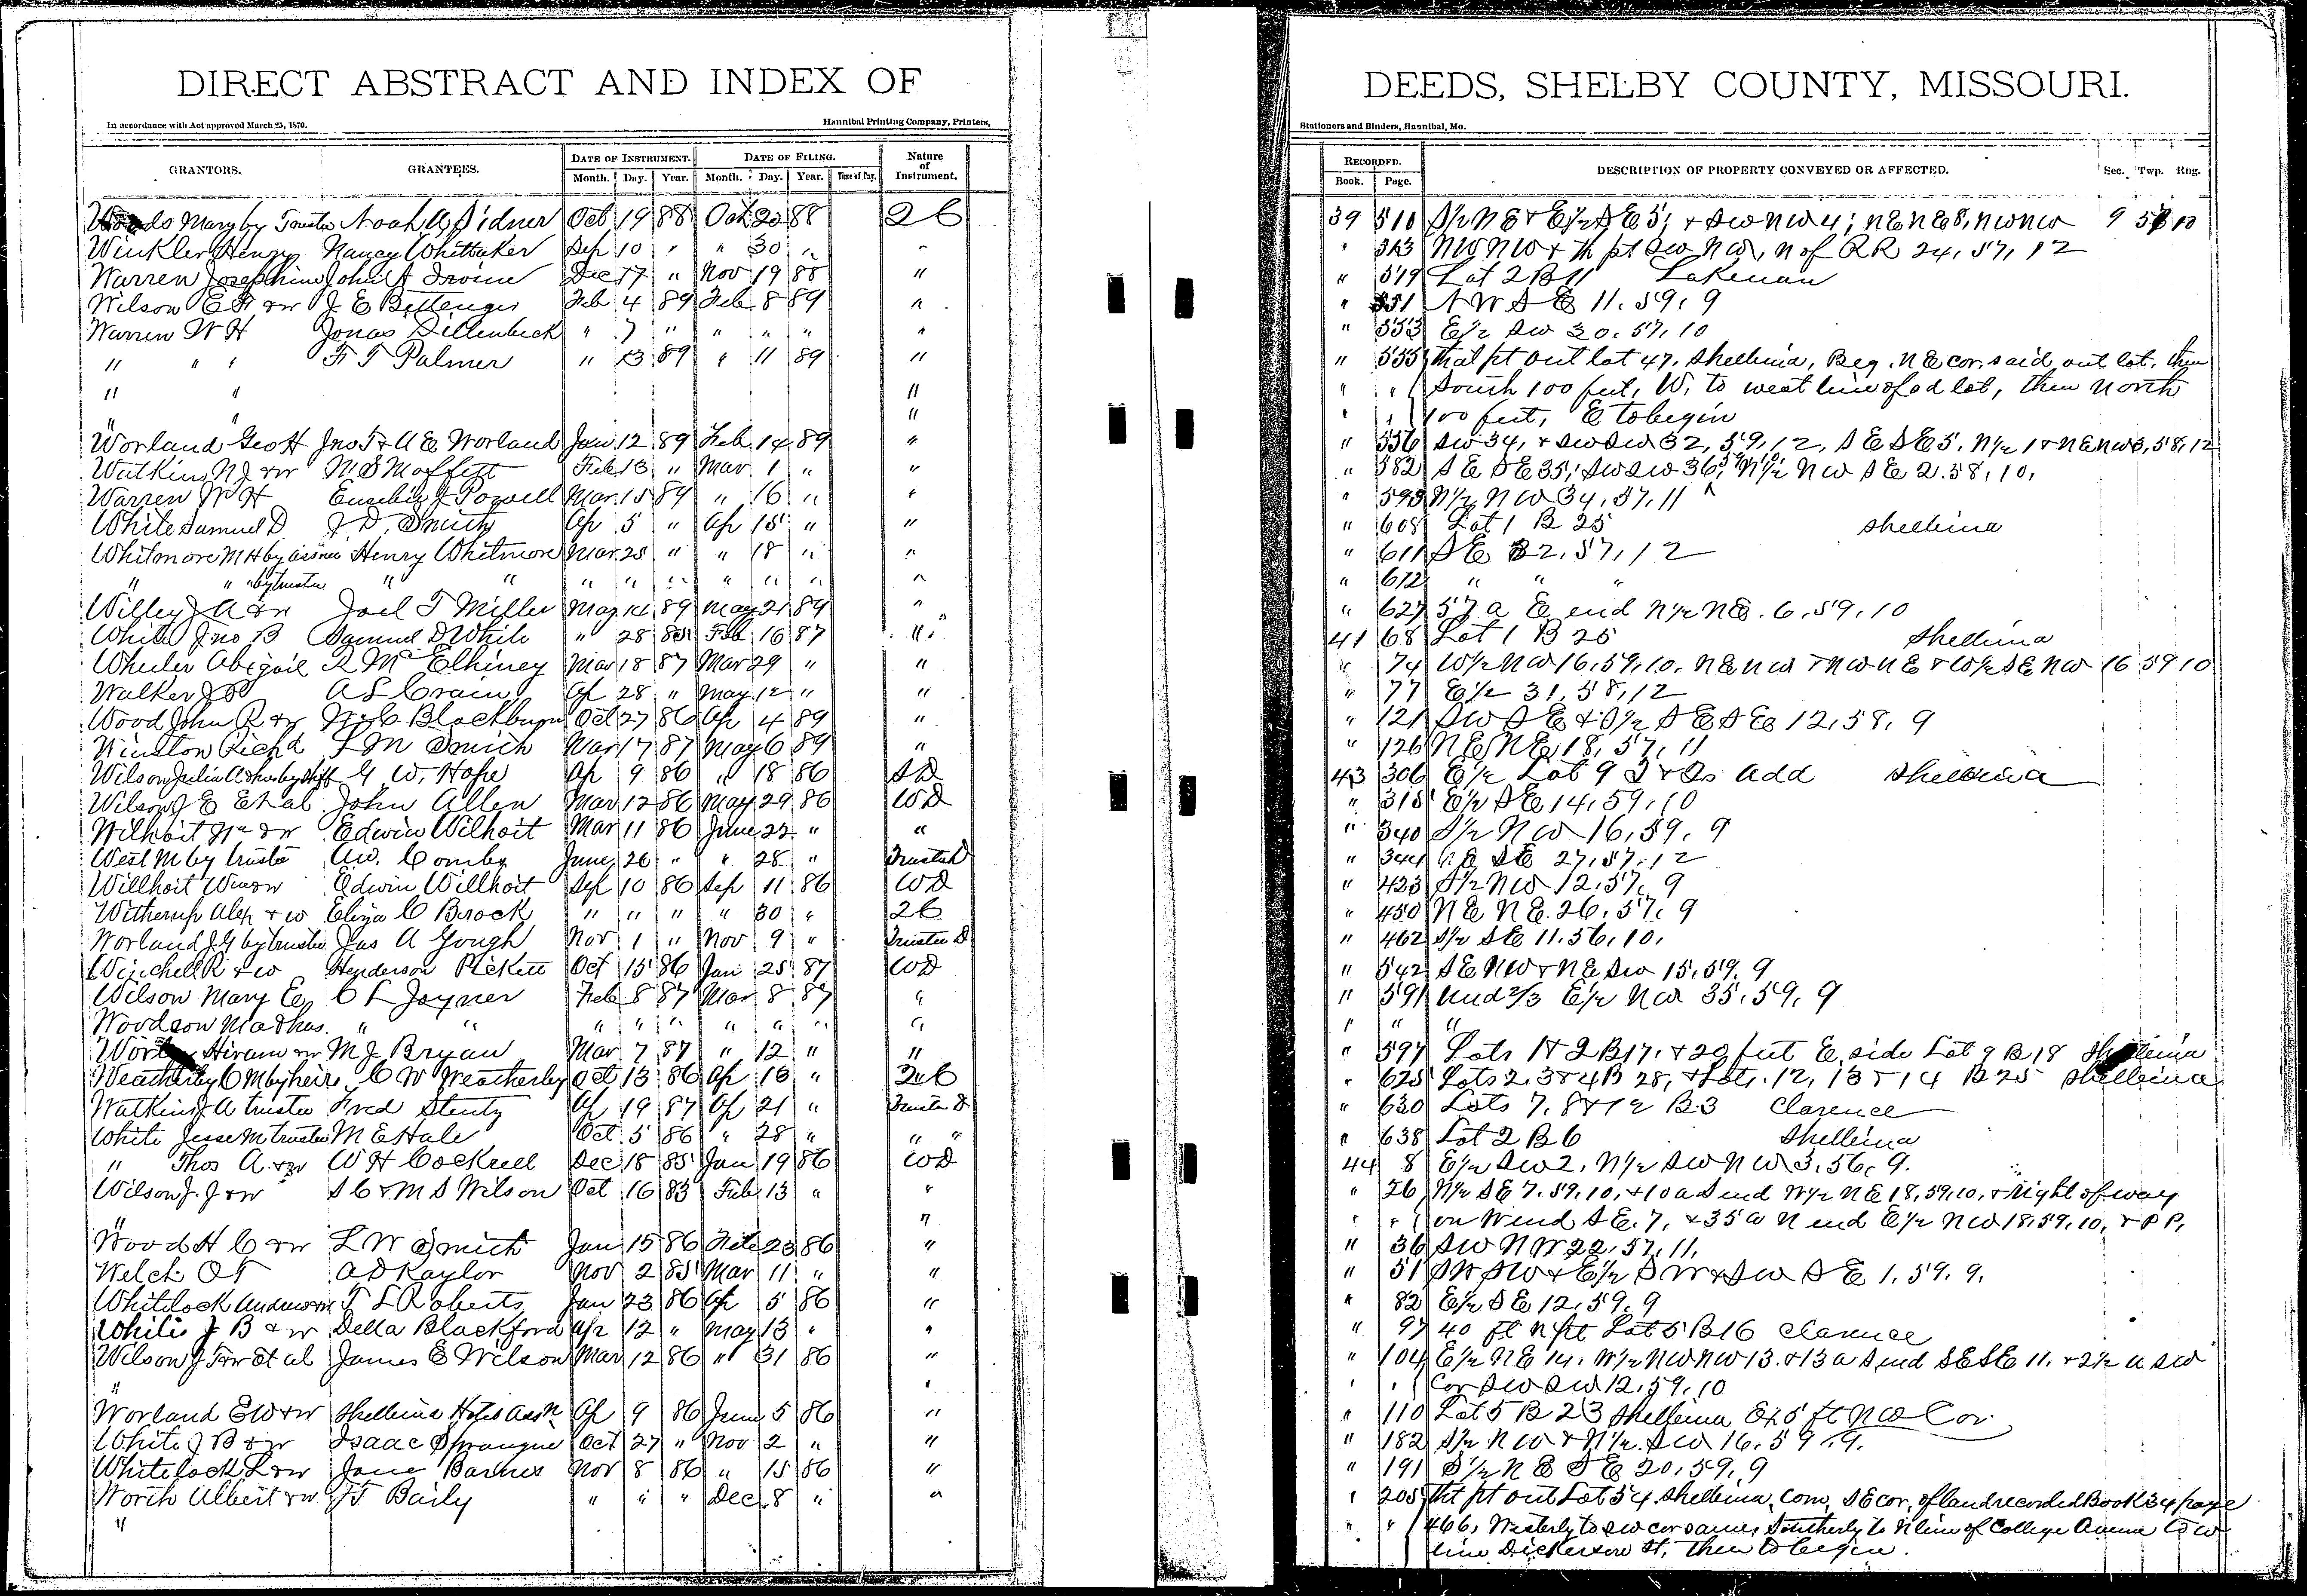 DIRECT ABSTRACT AND INDEX OF
In accordance with Act approved March 25, 1870.
Hannibal Printing Company, Printers,
GRANTORS. GRANTEES. DATE OF INSTRUMENT. DATE OF FILING. Nature of Instrument.
Month. Day. Year. Month. Day. Year. Time of Day.
Woods Mary by Trustee Noah W Sidner Oct 19 88 Oct 20 88 2C
Winkler Henry Nancy Whittaker Sep 10 " " 30 " "
Warren Josephine John A Irvine Dec 17 " Nov 19 88 "
Wilson E & w J E Bellenger Feb 4 89 Feb 8 89 "
Warren W H Jonas Dillenbeck " 7 " " " " "
" " " F T Palmer " 13 89 " 11 89 "
" " "
" " "
Worland Geo H Jno T & A E Worland Jan 12 89 Feb 14 89 "
Watkins N J & w N S Moffett Feb 13 " Mar 1 " "
Warren W H Eusebia J Powell Mar 15 89 " 16 " "
White Samuel D J D Smith Ap 5 " Ap 15 " "
Whitmore M H by assnee Henry Whitmore Mar 25 " " 18 " "
" " by trustee " " " " " " " " "
Willey J A & w Joel T Miller May 14 89 May 21 89 "
White Jno B Samuel D White " 28 Feb 16 87 "
Wheeler Abigail R McElhiney Mar 18 87 Mar 29 " "
Walker J A S Crain Ap 28 " May 12 " "
Wood John R & w W C Blackburn Oct 27 86 Ap 4 89 "
Winston Richd L M Smith Mar 17 87 May 6 89 "
Wilson Julia A by Shff G W. Hope Ap 9 86 " 18 86 SD
Wilson J E Et al John Allen Mar 12 86 May 29 86 WD
Wilhoit Wm & w Edwin Wilhoit Mar 11 86 June 22 " "
West M by trustee A W. Combs June 26 " " 28 " Trustee D
Willhoit Wm & w Edwin Willhoit Sep 10 86 Sep 11 86 WD
Witherup Alex & w Eliza C Brock " " " " 30 " 2C
Worland J G by trustee Jas A Gough Nov 1 " Nov 9 " Trustee D
Winchell R & w Henderson Pickett Oct 15 86 Jan 25 87 WD
Wilson Mary E C L Joyner Feb 8 87 Mar 8 87 "
Woodson Ma & hus. " " " " " " " " "
Hiram & w M J Bryan Mar 7 87 " 12 " "
Weatherby C M by heirs C W Weatherby Oct 13 86 Ap 16 " 2C
Watkins A trustee Fred Stentz Ap 19 87 Ap 21 " Trustee D
White Jesse M trustee M E Hale Oct 5 86 " 28 " " "
" Thos A. & w W H Cockrell Dec 18 85 Jan 19 86 WD
Wilson J. J & w S C & M S Wilson Oct 16 83 Feb 13 " "
" "
Wood H C & w L W Smith Jan 15 86 Feb 23 86 "
Welch O T A D Kaylor Nov 2 85 Mar 11 " "
Whitelock Andrew & w T L Roberts Jan 23 86 Ap 5 86 "
White J B & w Della Blackford Apr 12 " May 13 " "
Wilson J T & w Et al James E Wilson Mar 12 86 " 31 86 "
" "
Worland E W & w Shelbina Hotel Assn Ap 9 86 June 5 86 "
White J B & w Isaac Sprangue Oct 27 " Nov 2 " "
Whitelock L & w Jane Barnes Nov 8 86 " 15 86 "
Worth Albert & w T Baily " " " Dec 8 " "
"
DEEDS, SHELBY COUNTY, MISSOURI.
Stationers and Binders, Hannibal, Mo.
RECORDED. DESCRIPTION OF PROPERTY CONVEYED OR AFFECTED. Sec. Twp. Rng.
Book. Page.
39 510 S/2 NE & E/2 SE 5, & SW NW 4; NE NE 8, NW NW 9 58 10
" 313 NW NW & th pt SW NW, N of RR 24, 57, 12
" 519 Lot 2 B 11 Lakenan
" 551 NW SE 11, 59, 9
" 553 E/2 SW 30, 57, 10
" 555 that pt out lot 47, Shelbina, Beg. N E cor. said out lot, then
" " South 100 feet, W. to west line of sd lot, then North
" " 100 feet, E to begin
" 556 SW 34, & SW SW 32, 59, 12, SE SE 5, N/2 1 & NE NW 3, 58, 12
" 582 SE SE 35, SW SW 36, 59, 10, N/2 NW SE 2. 58, 10,
" 593 N/2 NW 34, 57, 11
" 608 Lot 1 B 25 Shelbina
" 611 SE 32, 57, 12
" 612 " " "
" 627 57 a E end N/2 NE. 6, 59, 10
41 68 Lot 1 B 25 Shelbina
" 74 W/2 NW 16, 59, 10. NE NW & NW NE & W/2 SE NW 16 59 10
" 77 E/2 31, 58, 12
" 121 SW SE & S/2 SE SE 12, 58, 9
" 126 NE NE 18, 57, 11
43 306 E/2 Lot 9 J & Ds add Shelbina
" 315 E/2 SE 14, 59, 10
" 340 S/2 NW 16, 59, 9
" 344 SE 27, 57, 12
" 423 S/2 NW 12, 57, 9
" 450 NE NE. 26, 57, 9
" 462 S/2 SE 11. 56, 10,
" 542 SE NW & NE SW 15, 59, 9
" 591 Und 2/3 E/2 NW 35, 59, 9
" " "
" 597 Lots 1 & 2 B 17, & 20 feet E. side Lot 9 B 18 Shelbina
" 625 Lots 2, 3 & 4 B 28, & Lots. 12, 13 & 14 B 25 Shelbina
" 630 Lots 7, 8 & 12 B 3 Clarence
" 638 Lot 2 B 6 Shelbina
44 8 E/2 SW 2, N/2 SW NW 3, 56, 9.
" 26 N/2 SE 7, 59, 10, & 10 a S end W/2 NE 18, 59, 10, & right of way
" " on W end SE. 7, & 35 a N end E/2 NW 18, 59, 10, & P P,
" 36 SW NW 22, 57, 11,
" 51 SW SW & E/2 SW & SW SE 1, 59, 9,
" 82 E/2 SE 12, 59, 9
" 97 40 ft N pt Lot 5 B 16 Clarence
" 104 E/2 NE 14, W/2 NW NW 13. & 13 a S end SE SE 11. & 2 1/2 a SW
" " Cor SW SW 12, 59, 10
" 110 Lot 5 B 23 Shelbina Ex 5 ft NW Cor.
" 182 S/2 NW & N/2. SW 16, 59, 9.
" 191 S/2 NE SE 20, 59, 9
" 205 tht pt out Lot 54, Shelbina, Com, SE cor, of land recorded Book 34 page
" " 466, Westerly to SW cor same, Southerly to N line of College Avenue to W
line Dickerson St, then to begin.